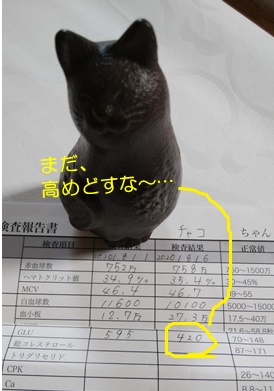 まだ、
高めどすな〜…
検査報告書 チャコ ちゃん
検査項目 検査結果 検査結果 正常値
2020/9/11 2020/9/16
赤血球数 752万 758万 1500万
ヘマトクリット値 34.9% 35.4% 30~45%
MCV 46.4 46.7 39~55
白血球数 11600 20100 5000~15000
血小板 12.7万 27.3万 17.5~40万
GLU 595 420 70~148
総コレステロール 67~171
トリグリセリド
CPK
Ca